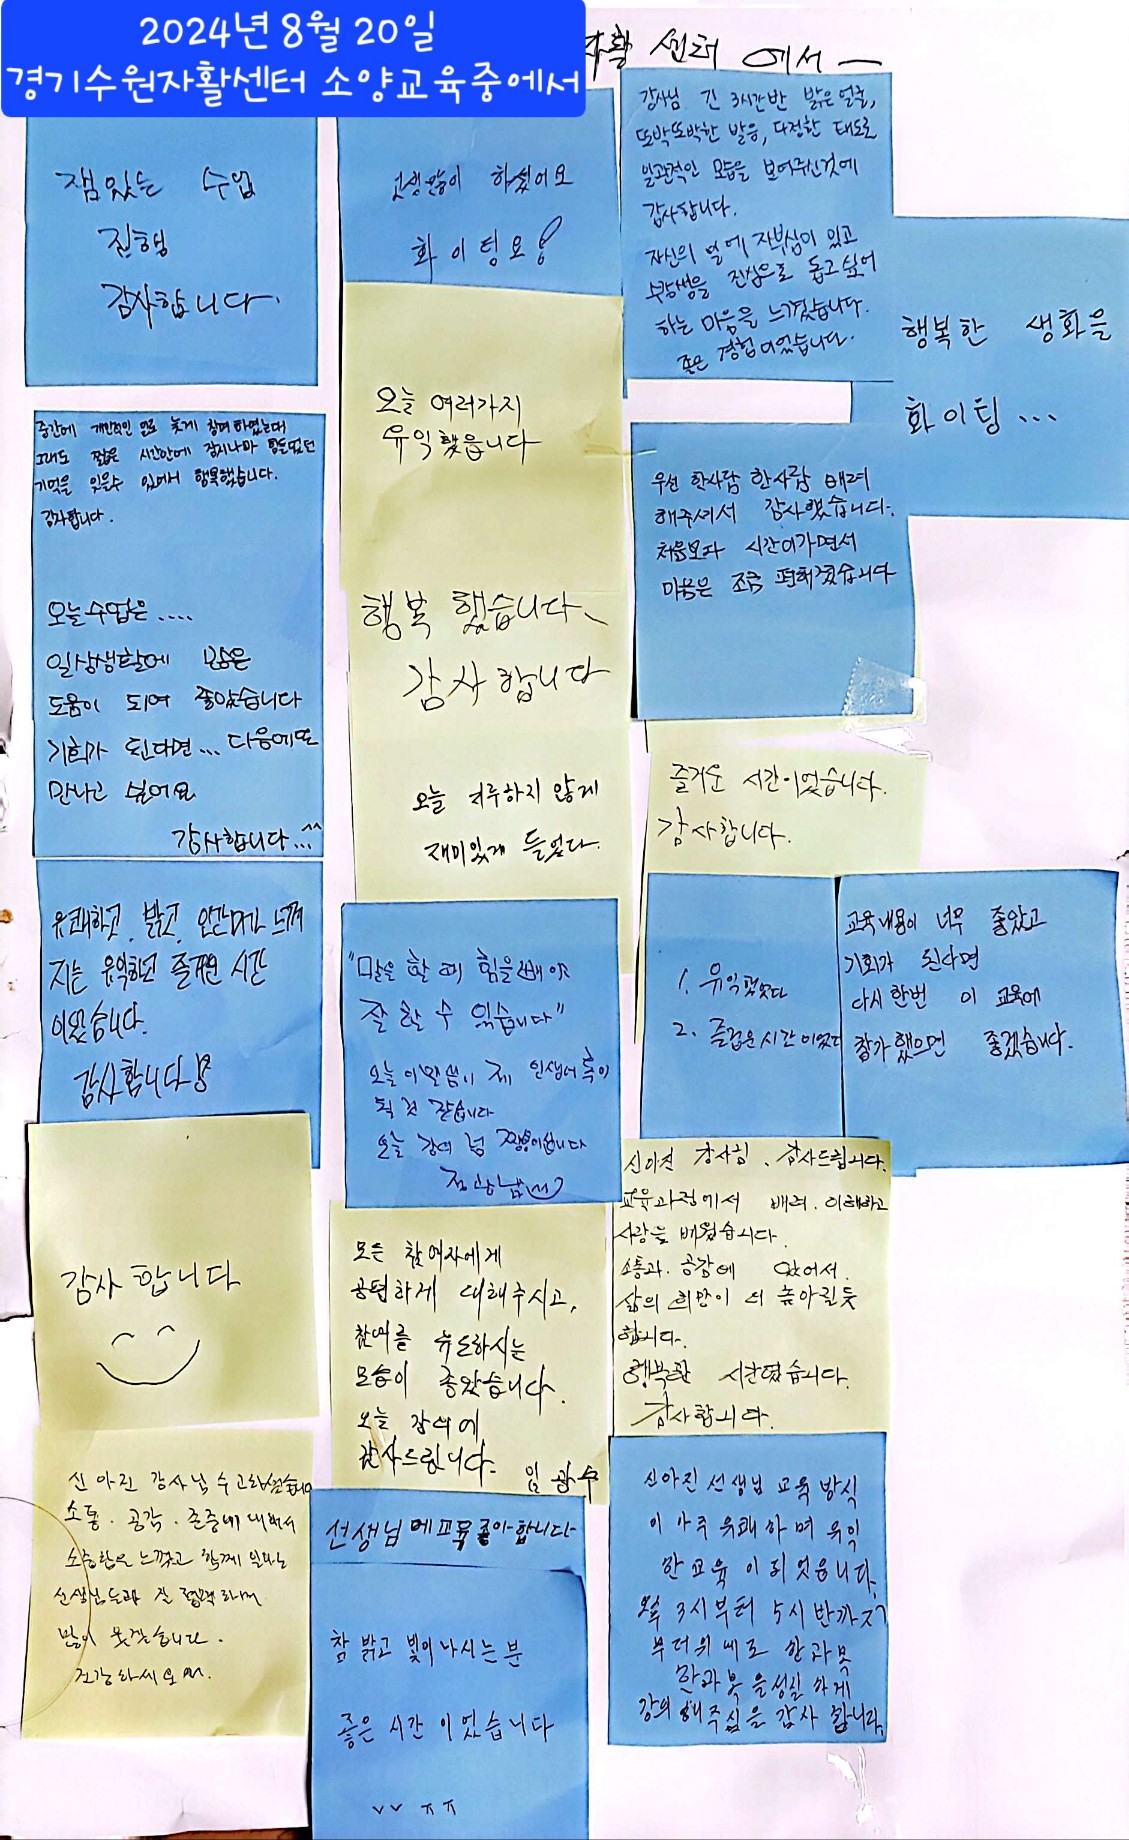 2024년 8월 20일
경기수원자활센터 소양교육중에서
자활 센터 에서 —
잼있는 수업
진행
감사합니다.
고생많이 하셨어요
화이팅요!
강사님 긴 3시간반 밝은 얼굴,
또박또박한 발음, 다정한 태도로
일관적인 모습을 보여주신것에
감사합니다.
자신의 일에 자부심이 있고
수강생을 진심으로 돕고 싶어
하는 마음을 느꼈습니다.
좋은 경험이었습니다.
행복한 생활을
화이팅...
중간에 개인적인 일로 늦게 참여하였는데
그래도 짧은 시간안에 잠시나마 힘들었던
기억을 잊을수 있어서 행복했습니다.
감사합니다.
오늘 여러가지
유익했습니다
우선 한사람 한사람 배려
해주셔서 감사했습니다.
처음보다 시간이가면서
마음은 조금 편해졌습니다
오늘수업은....
일상생활에 많은
도움이 되여 좋았습니다
기회가 된다면... 다음에또
만나고 싶어요
감사합니다...^^
행복 했습니다.
감사합니다
오늘 지루하지 않게
재미있게 들었다.
즐거운 시간이었습니다.
감사합니다.
유쾌하고, 밝고, 인간미가 느껴
지는 유익하고 즐거운 시간
이었습니다.
감사합니다
"말을 할 때 힘을 빼야
잘 할 수 있습니다"
오늘 이말씀이 제 인생에 축이
될 것 같습니다
오늘 강의 넘 짱이십니다
1. 유익했었다
2. 즐겁은 시간이었다
교육내용이 너무 좋았고
기회가 된다면
다시한번 이 교육에
참가했으면 좋겠습니다.
감사합니다
모든 참여자에게
공평하게 대해주시고,
참여를 유도하시는
모습이 좋았습니다.
오늘 강의에
감사드립니다.
임광수
신아진 강사님, 감사드립니다.
교육과정에서 배려, 이해하고
사랑을 배웠습니다.
소통과 공감에 있어서
삶의 희망이 더 높아질듯
합니다.
행복한 시간였습니다.
감사합니다.
신아진 강사님 수고하셨습니다
소통·공감·존중에 대해서
소중함을 느꼈고 함께 일하는
선생님들과 잘 협력하며
많이 웃겠습니다.
건강하세요
선생님 에교육 좋아합니다
참 밝고 빛이나시는 분
좋은 시간 이었습니다
vv ㅠㅠ
신아진선생님 교육 방식
이 아주 유쾌하며 유익
한 교육이 되었읍니다.
오후 3시부터 5시반까지
부터위대로 한과목
한과목을 성실하게
강의해주심을 감사합니다.